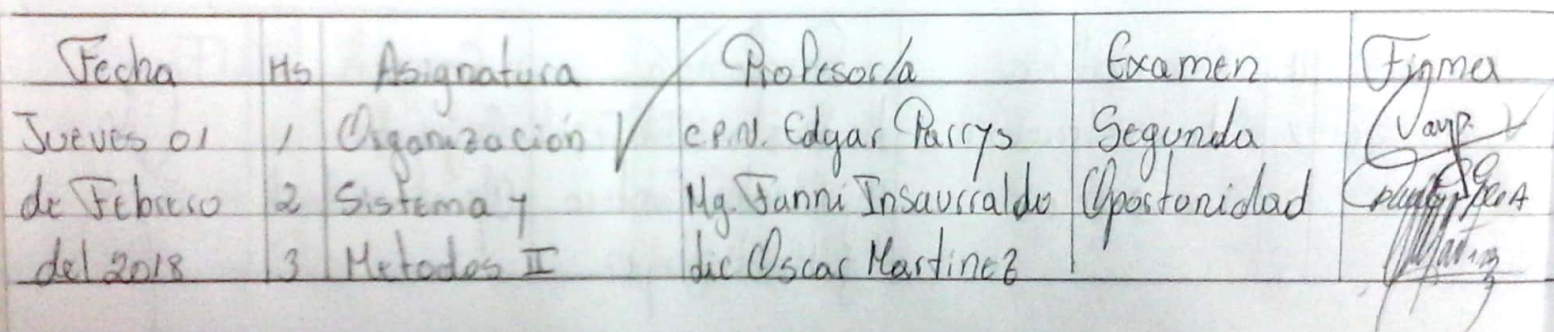 Fecha Hs Asignatura Profesor/a Examen Firma
Jueves 01 1 Organización c.p.N. Edgar Parrys Segunda
de Febrero 2 Sistema y Mg. Fanni Insaurralde Oportunidad
del 2018 3 Metodos II Lic Oscar Martinez